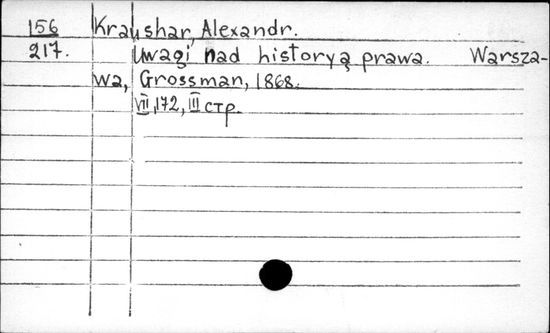 156 Kraushar, Alexandr.
217. Uwagi nad historyą prawa. Warsza-
wa, Grossman, 1868.
VII, 172, III стр.